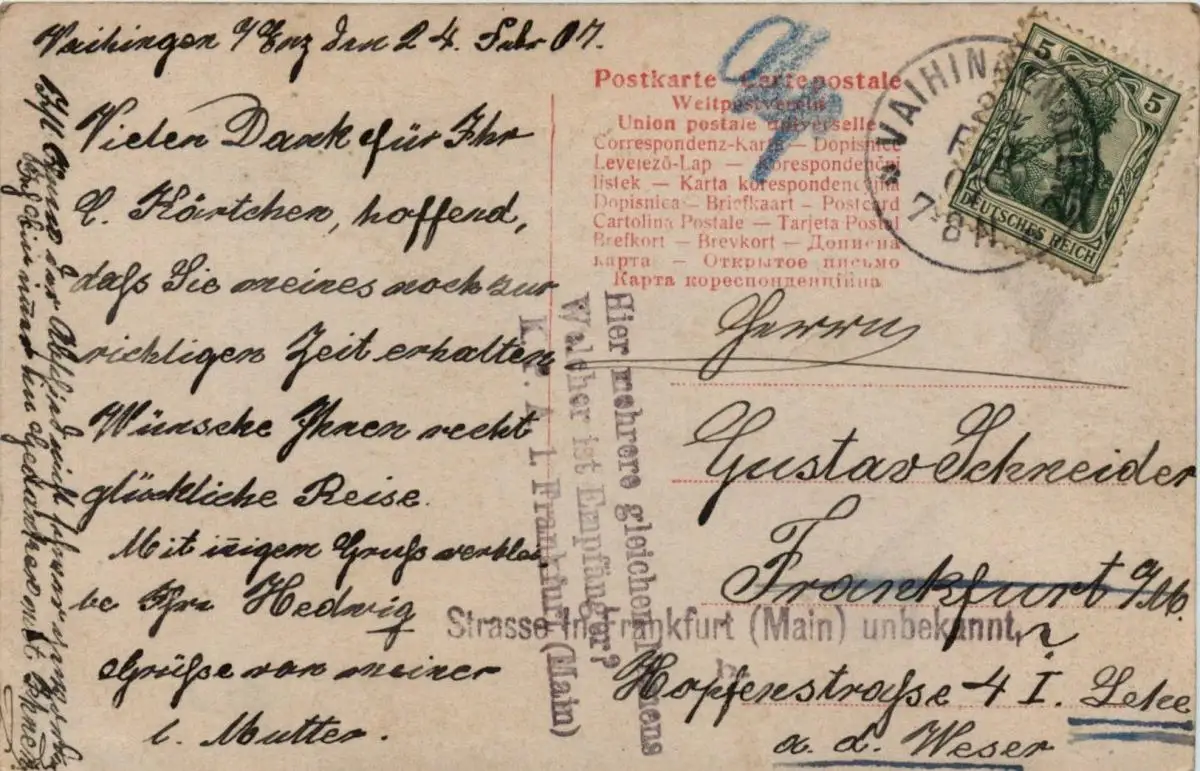 Vaihingen a/Enz den 24. Febr 07.
Vielen Dank für Ihr
l. Kärtchen, hoffend,
dass Sie meines noch zur
richtigen Zeit erhalten
Wünsche Ihnen recht
glückliche Reise.
Mit iñigem Gruss verblei
be Ihre Hedwig
Grüsse von meiner
l. Mutter.
der Abschied nicht schwer
bin immer in Gedanken mit Ihnen
Postkarte Carte postale
Weltpostverein
Union postale universelle
Correspondenz-Karte — Dopisnice
Levelező-Lap — Korespondenční
lístek — Karta korespondencyjna
Dopisnica — Briefkaart — Postcard
Cartolina Postale — Tarjeta Postal
Brefkort — Brevkort — Дописна
карта — Открытое письмо
Карта кореспонденційна
VAIHINGEN
7-8 N
5 5
DEUTSCHES REICH
Herrn
Gustav Schneider
Frankfurt a/M.
Hopfenstrasse 4 I.
a. d. Weser
Hier mehrere gleichen Namens
Welcher ist Empfänger?
K. P. A. 1. Frankfurt (Main)
Strasse in Frankfurt (Main) unbekannt,